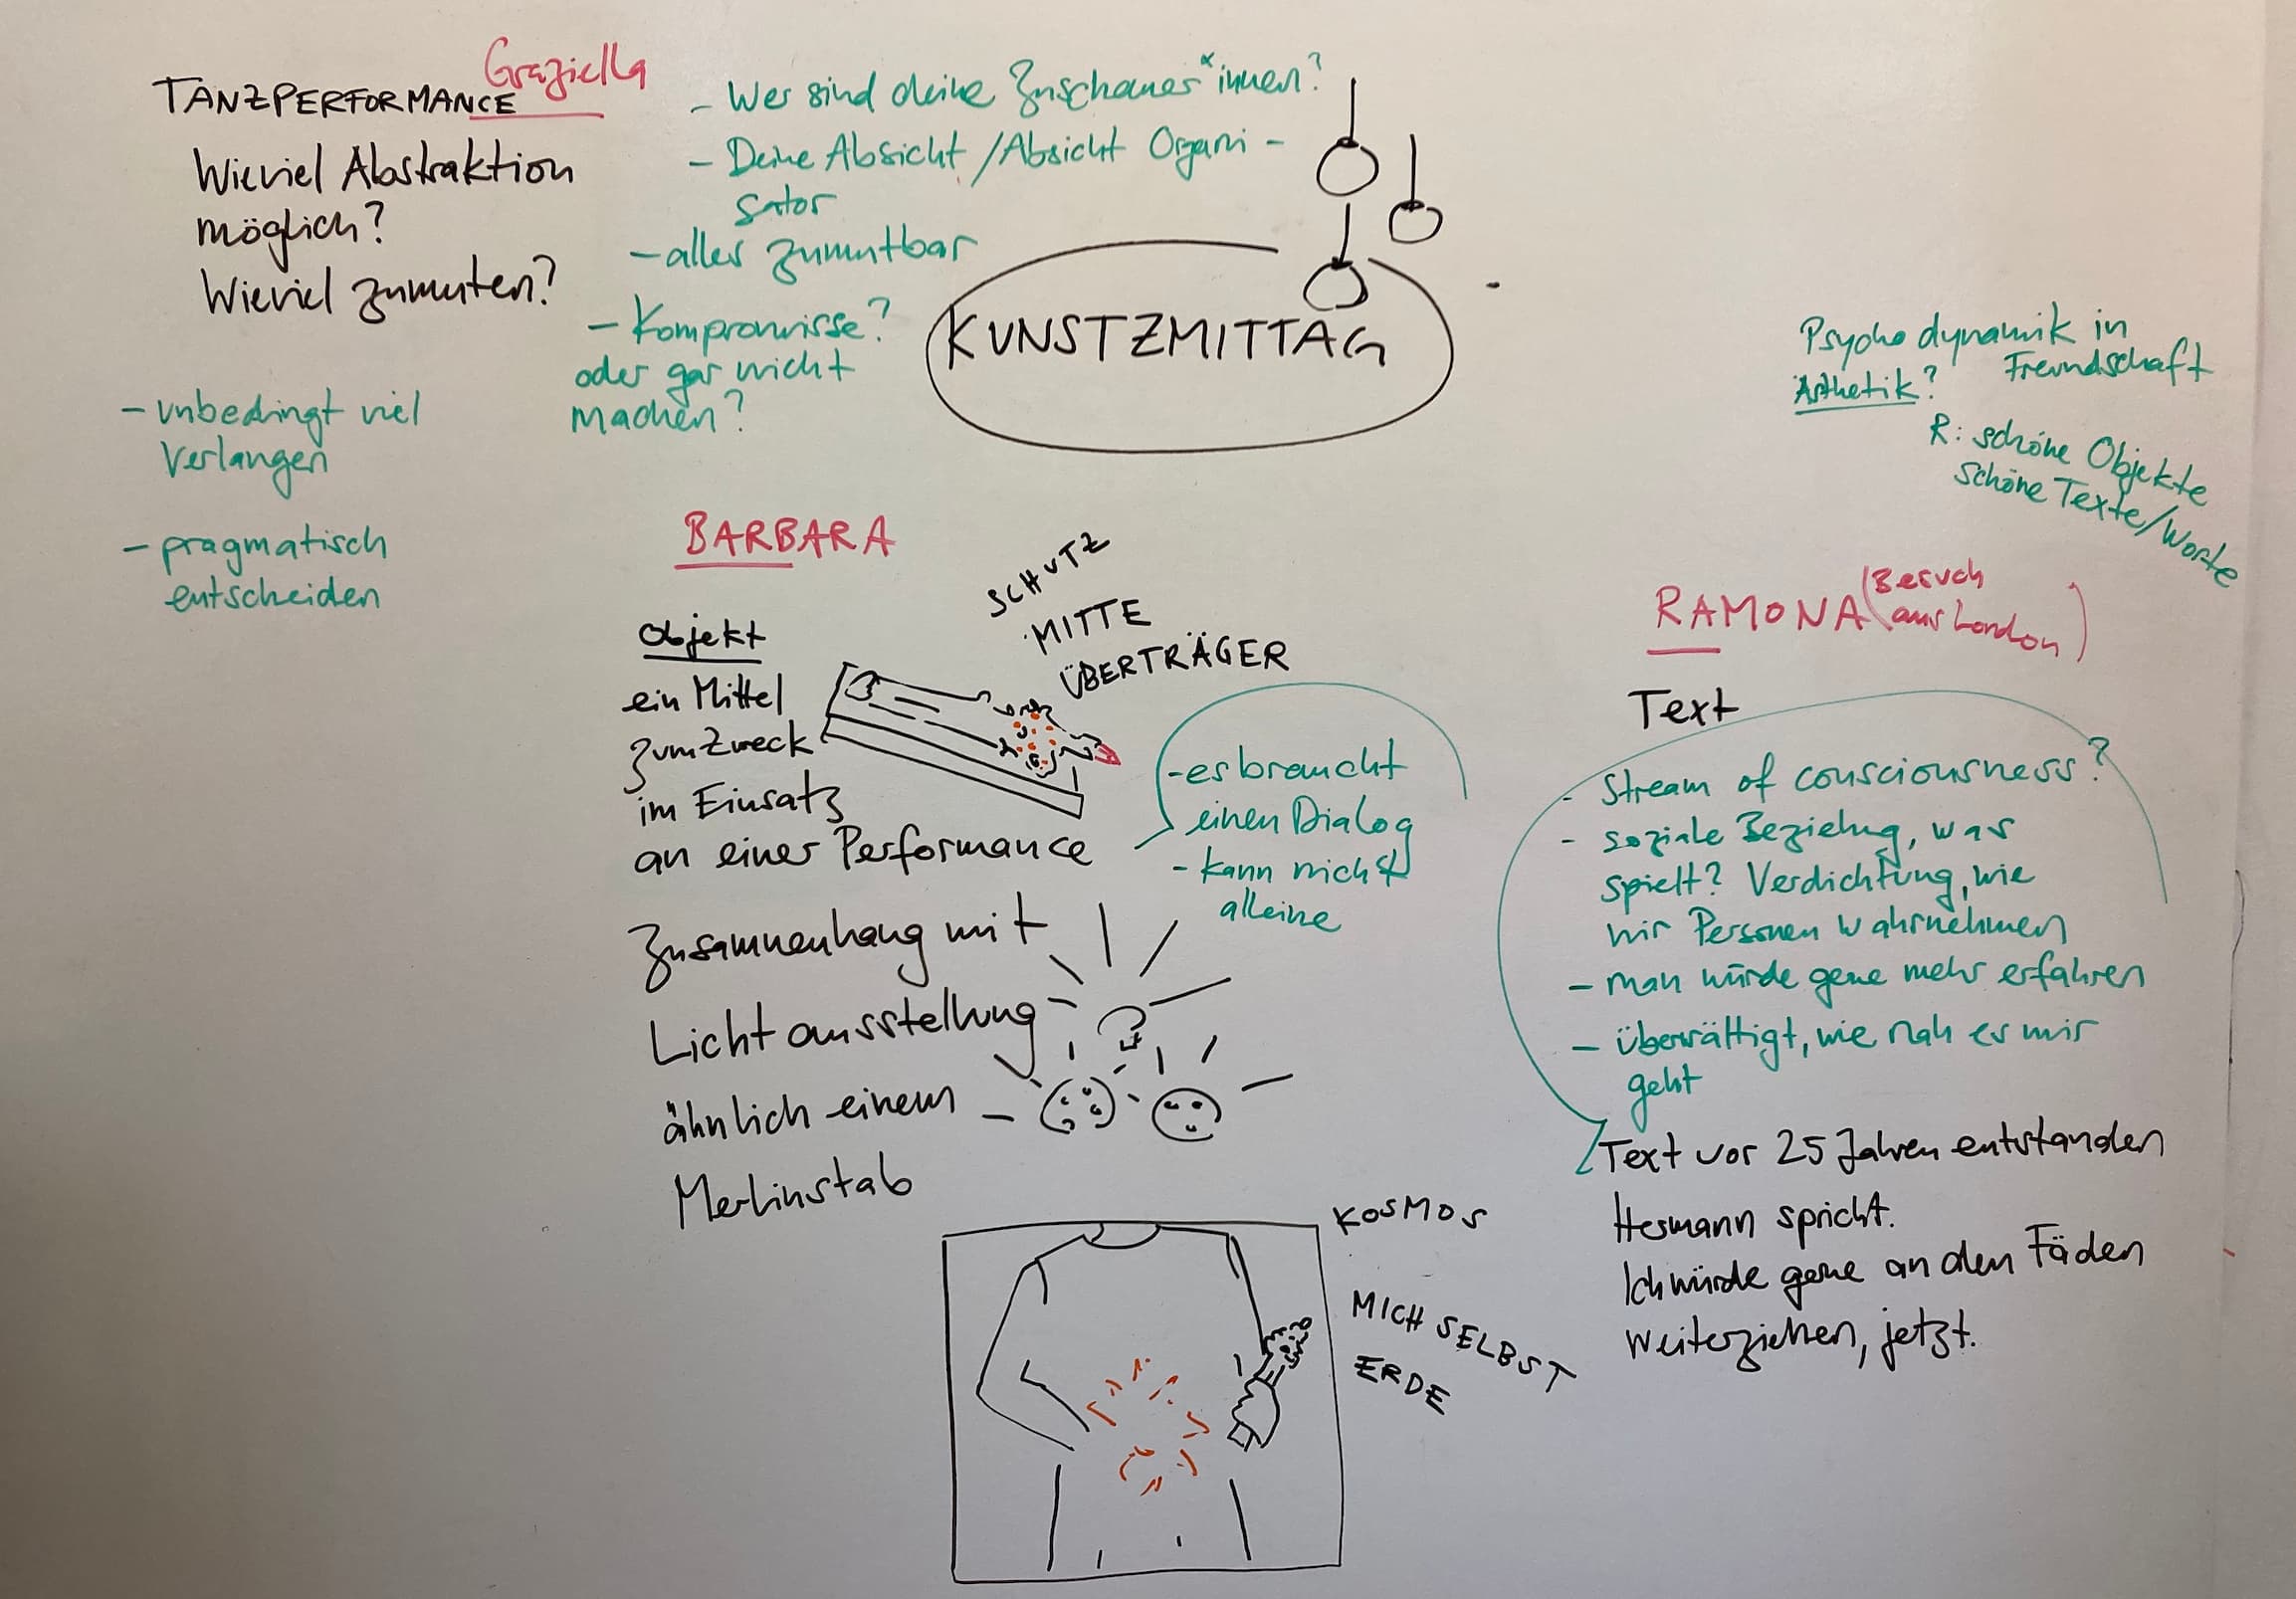 Graziella
TANZPERFORMANCE
Wieviel Abstraktion
möglich?
Wieviel zumuten?
- unbedingt viel
verlangen
- pragmatisch
entscheiden
- Wer sind deine Zuschauer*innen?
- Deine Absicht / Absicht Organi-
sator
- alles zumutbar
- Kompromisse?
oder gar nicht
machen?
KUNSTZMITTAG
BARBARA
Objekt
ein Mittel
zum Zweck
im Einsatz
an einer Performance
SCHUTZ
MITTE
ÜBERTRÄGER
- es braucht
einen Dialog
- kann nicht
alleine
Zusammenhang mit
Lichtausstellung
ähnlich einem
Merlinstab
KOSMOS
MICH SELBST
ERDE
Psychodynamik in
Freundschaft
Ästhetik?
R: schöne Objekte
schöne Texte/Worte
RAMONA (Besuch
aus London)
Text
- Stream of consciousness?
- soziale Beziehung, was
spielt? Verdichtung, wie
wir Personen wahrnehmen
- man würde gerne mehr erfahren
- überwältigt, wie nah es mir
geht
Text vor 25 Jahren entstanden
Hermann spricht.
Ich würde gerne an den Fäden
weiterziehen, jetzt.